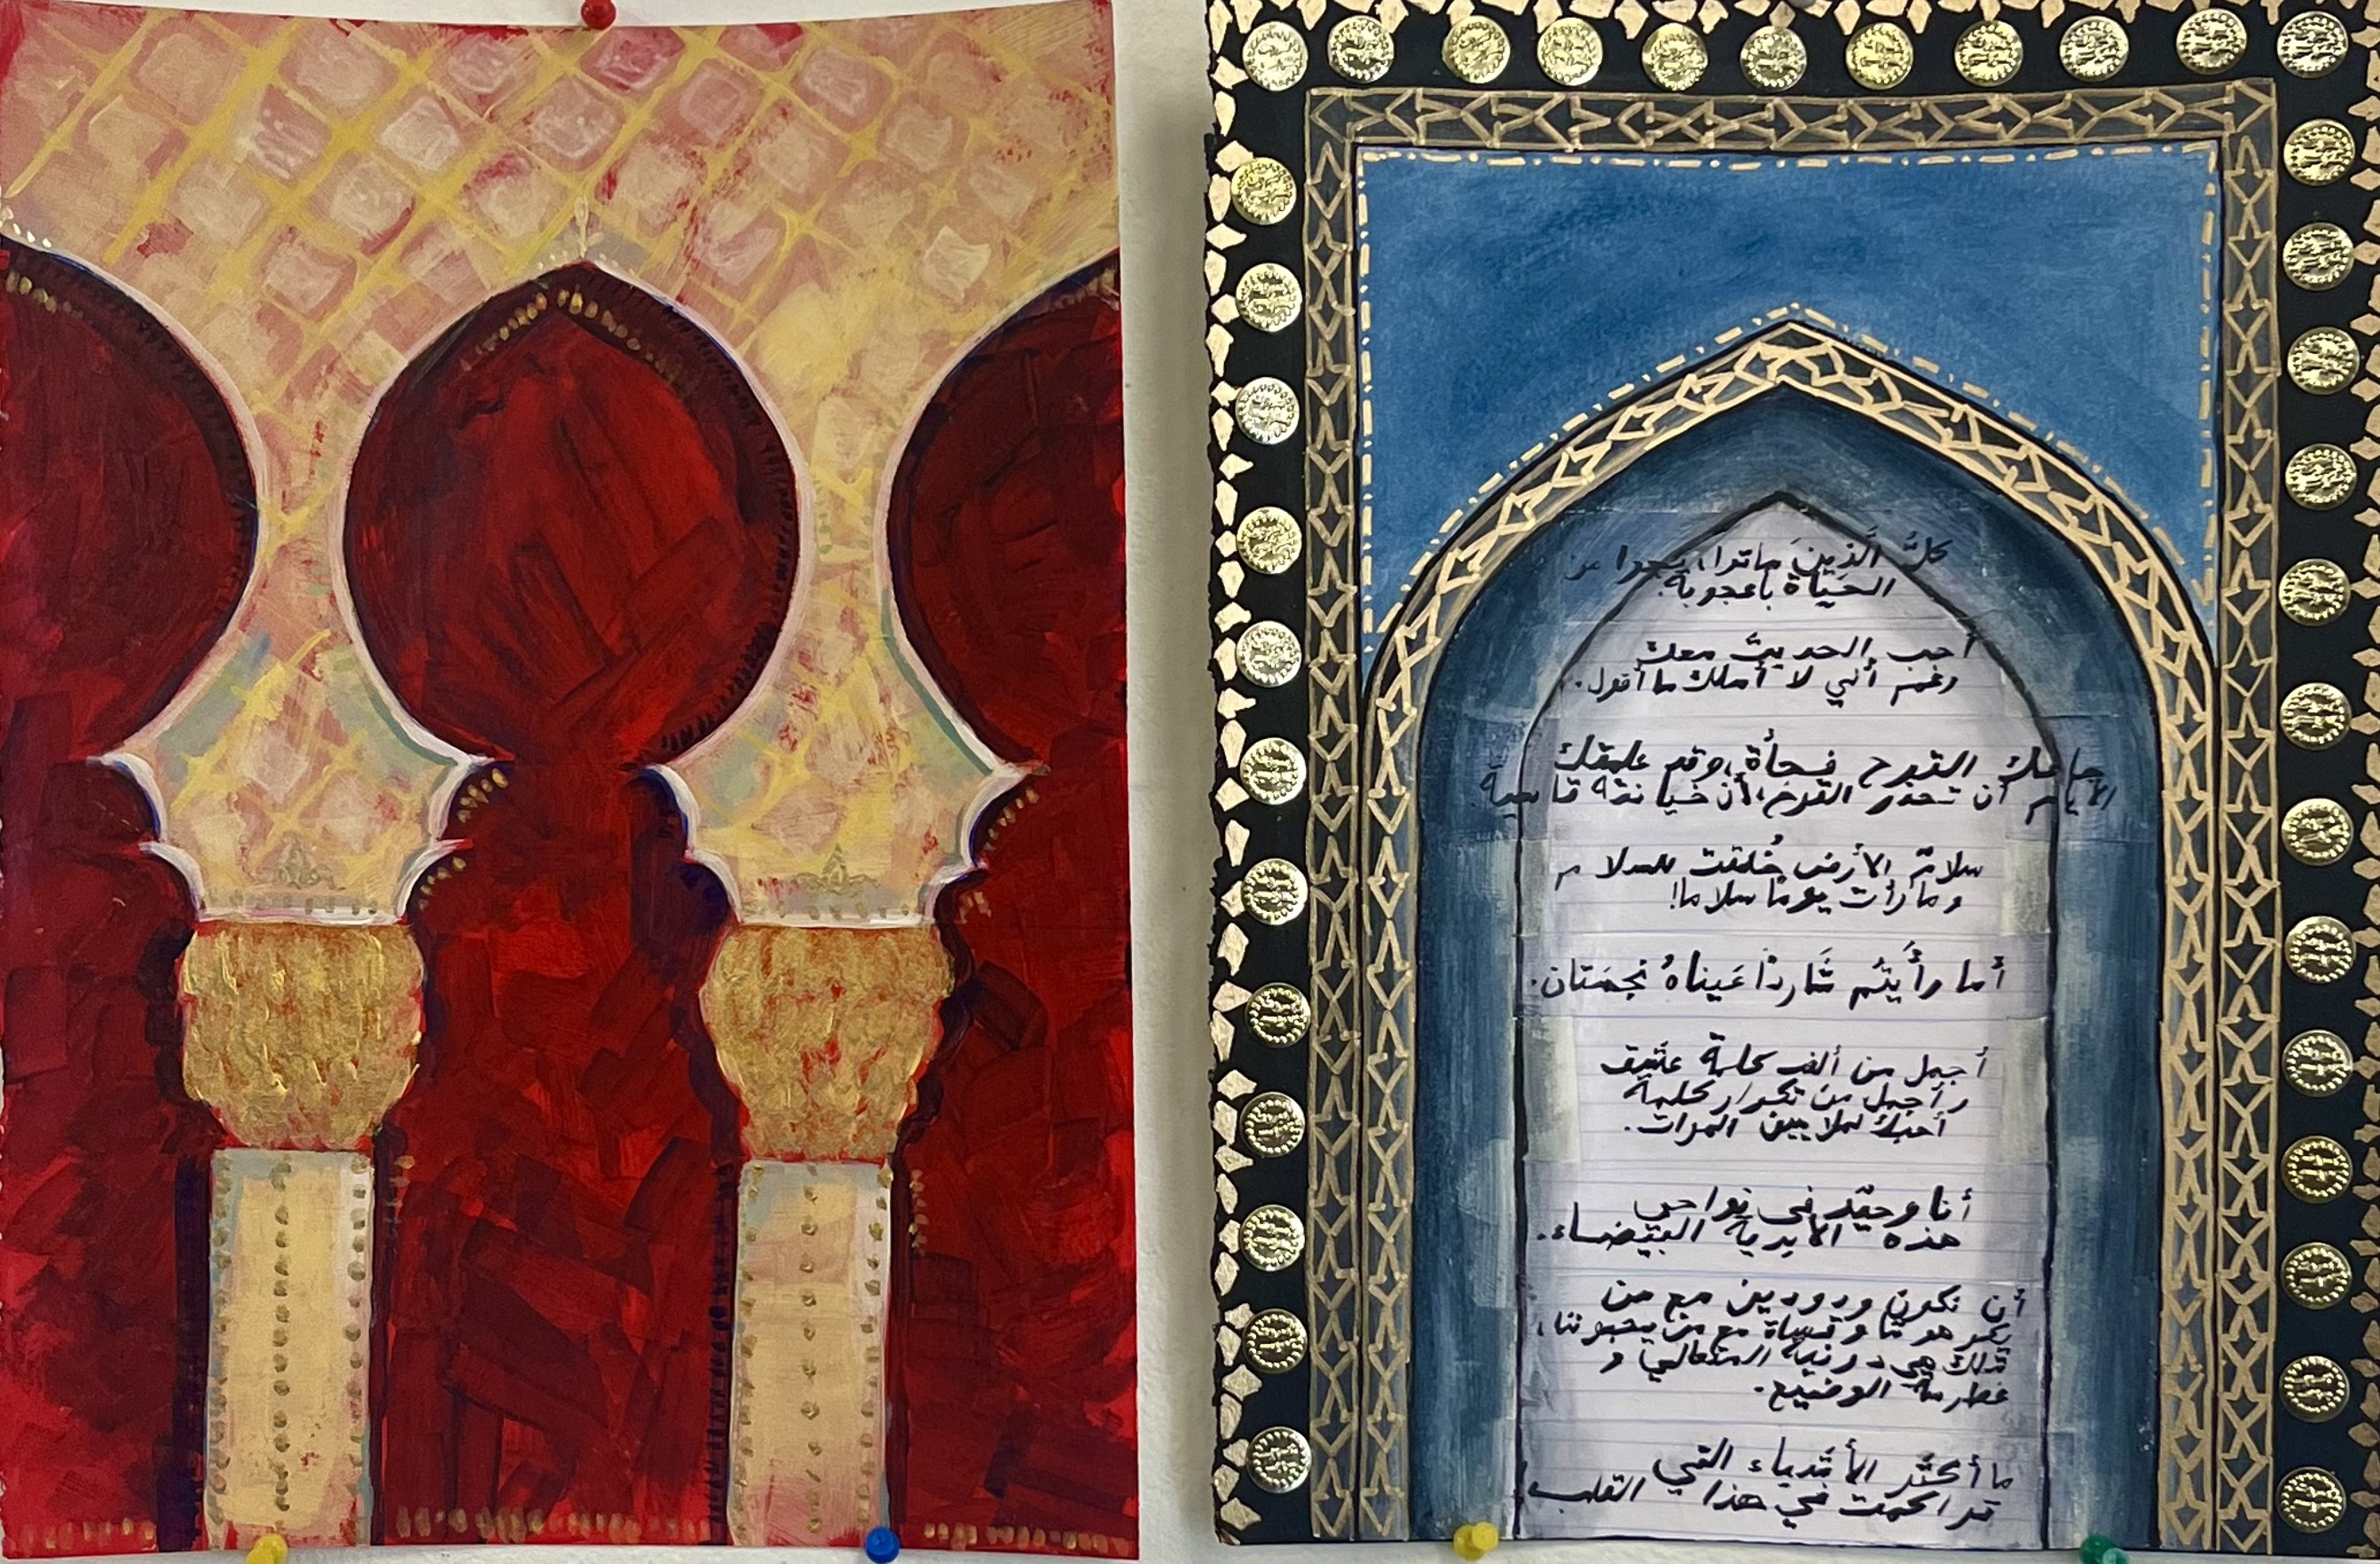 كلُّ الَّذينَ ماتوا، نجوا من
الحَيَاة بأعجوبة.
أحب الحديث معك
رغم أني لا أملك ما أقول.
جاءك الفرح فجأة، وقد علمتك
الأيام أن تحذر الفرح، لأن خيانته قاسية.
سلامٌ لأرض خُلقت للسلام
وما رأت يومًا سلاما!
أما رأَيتُم شَاردًا عَيناهُ نجمَتان.
أجمل من ألف كلمة عشق
وأجمل من تكرار كلمة
أحبك لملايين المرات.
أنا وحيد في نواحي
هذه الأبدية البيضاء.
أن نكون ودودين مع من
يكرهوننا وقساة مع من يحبوننا،
تلك هي دونية المتعالي و
غطرسة الوضيع.
ما أكثر الأشياء التي
تراكمت في هذا القلب